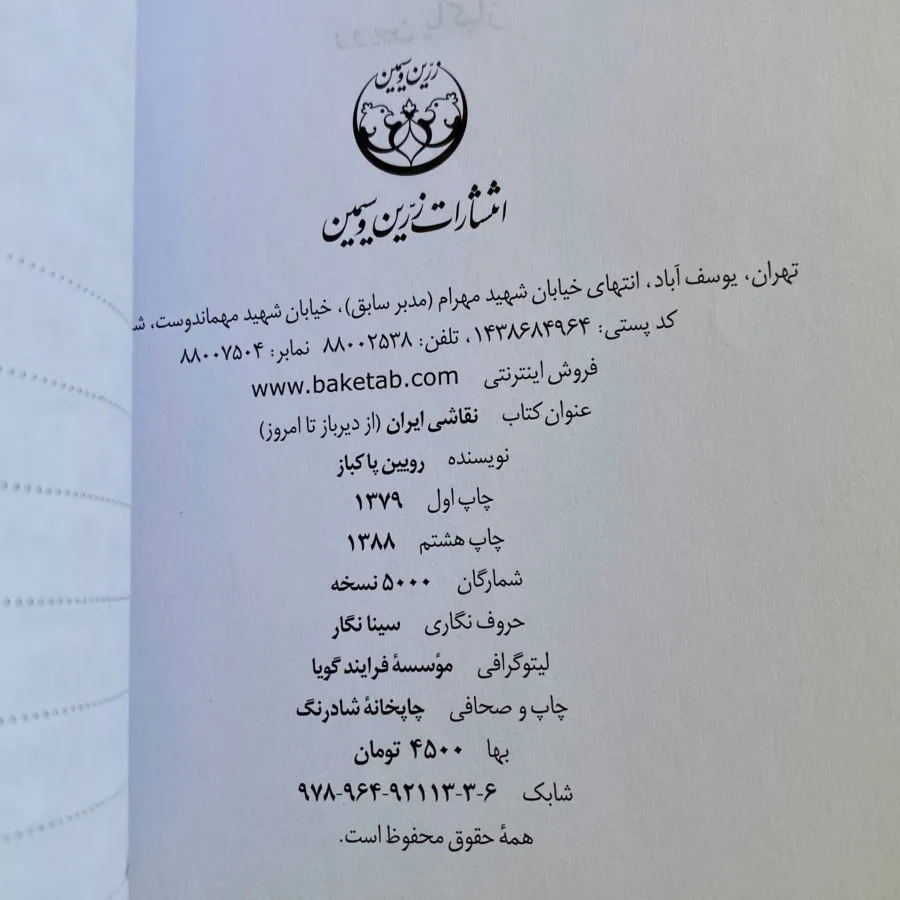 زرّین و سیمین
انتشارات زرّین و سیمین
تهران، یوسف آباد، انتهای خیابان شهید مهرام (مدبر سابق)، خیابان شهید مهماندوست،
کد پستی: ۱۴۳۸۶۸۴۹۶۴، تلفن: ۸۸۰۰۲۵۳۸ نمابر: ۸۸۰۰۷۵۰۴
فروش اینترنتی www.baketab.com
عنوان کتاب نقاشی ایران (از دیرباز تا امروز)
نویسنده رویین پاکباز
چاپ اول ۱۳۷۹
چاپ هشتم ۱۳۸۸
شمارگان ۵۰۰۰ نسخه
حروف نگاری سینا نگار
لیتوگرافی مؤسسهٔ فرایند گویا
چاپ و صحافی چاپخانهٔ شادرنگ
بها ۴۵۰۰ تومان
شابک ۹۷۸-۹۶۴-۹۲۱۱۳-۳-۶
همهٔ حقوق محفوظ است.